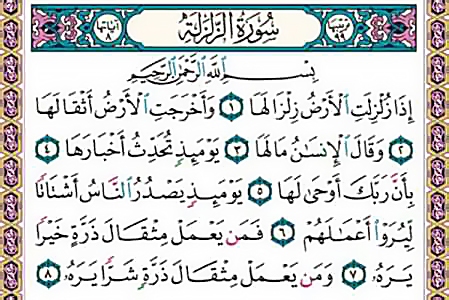 ترتيبها ٩٩ سورة الزلزلة آياتها ٨
بسم الله الرحمن الرحيم
إِذَا زُلْزِلَتِ ٱلْأَرْضُ زِلْزَالَهَا ١ وَأَخْرَجَتِ ٱلْأَرْضُ أَثْقَالَهَا
٢ وَقَالَ ٱلْإِنسَٰنُ مَالَهَا ٣ يَوْمَئِذٍ تُحَدِّثُ أَخْبَارَهَا ٤
بِأَنَّ رَبَّكَ أَوْحَىٰ لَهَا ٥ يَوْمَئِذٍ يَصْدُرُ ٱلنَّاسُ أَشْتَاتًا
لِّيُرَوْا۟ أَعْمَٰلَهُمْ ٦ فَمَن يَعْمَلْ مِثْقَالَ ذَرَّةٍ خَيْرًا
يَرَهُۥ ٧ وَمَن يَعْمَلْ مِثْقَالَ ذَرَّةٍ شَرًّا يَرَهُۥ ٨